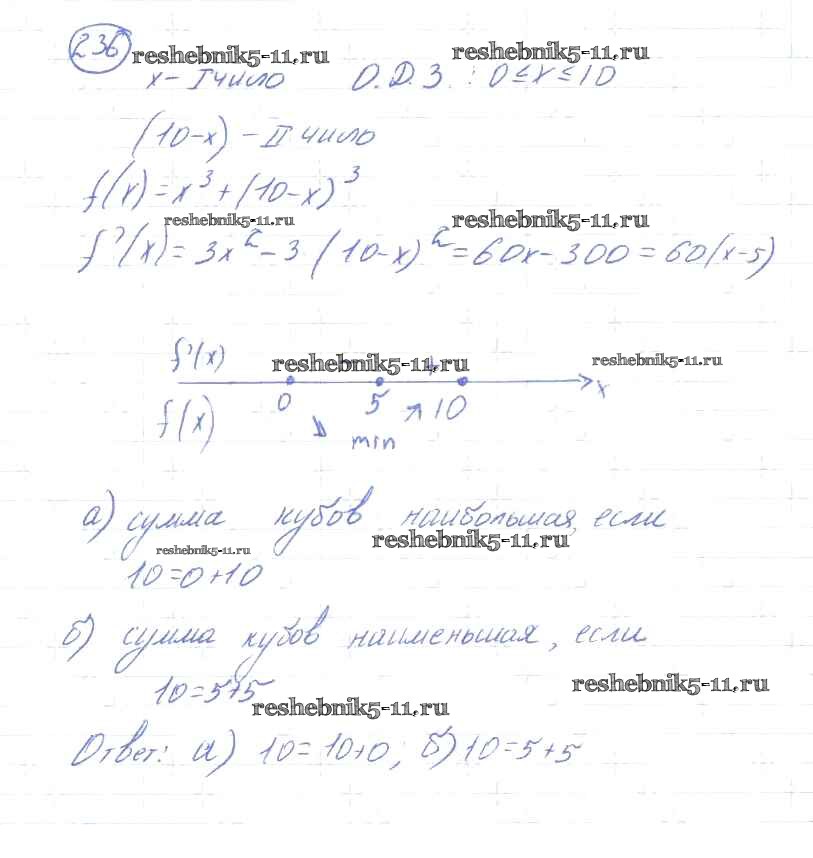 236 reshebnik5-11.ru reshebnik5-11.ru
x - I число О.Д.З. : 0 ≤ x ≤ 10
(10-x) - II число
f(x) = x³ + (10-x)³
reshebnik5-11.ru reshebnik5-11.ru
f'(x) = 3x² - 3(10-x)² = 60x - 300 = 60(x-5)
f'(x) reshebnik5-11.ru + reshebnik5-11.ru
0 5 10 x
f(x) ↘ min ↗
а) сумма кубов наибольшая, если
reshebnik5-11.ru reshebnik5-11.ru
10=0+10
б) сумма кубов наименьшая, если
10=5+5 reshebnik5-11.ru
reshebnik5-11.ru
Ответ: а) 10=10+0; б) 10=5+5